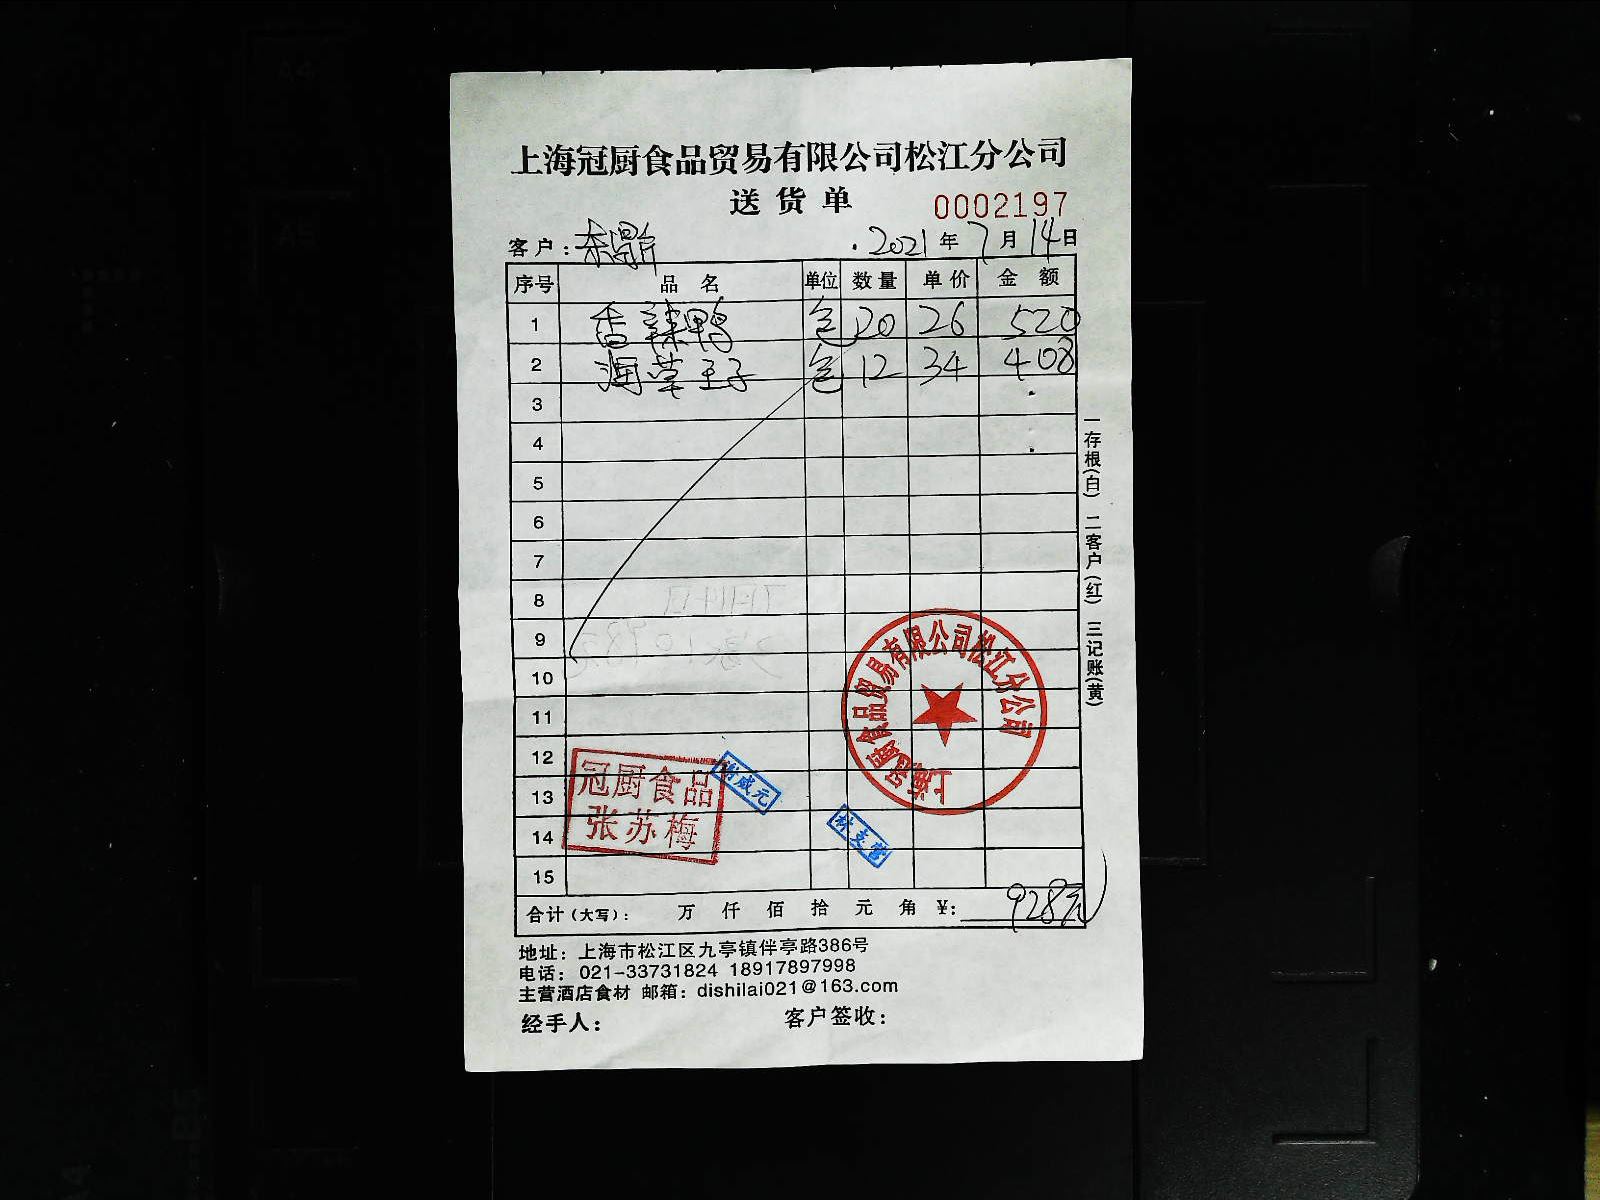 上海冠厨食品贸易有限公司松江分公司
送货单 0002197
客户: 2021年7月14日
序号 品名 单位 数量 单价 金额
1 香辣鸭 包 20 26 520
2 海草王子 包 12 34 408
3
4
5
6
7
8
9
10
11
12
13
14
15
合计(大写): 万 仟 佰 拾 元 角 ¥: 928元
一存根(白) 二客户(红) 三记账(黄)
上海冠厨食品贸易有限公司松江分公司
冠厨食品
张苏梅
谢咸元
林支营
地址: 上海市松江区九亭镇伴亭路386号
电话: 021-33731824 18917897998
主营酒店食材 邮箱: dishilai021@163.com
经手人: 客户签收:
A4
A5